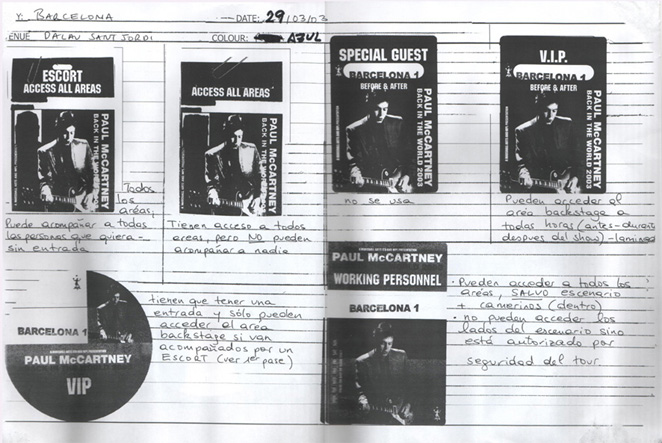 Y: BARCELONA
DATE: 29/03/03
ENUE PALAU SANT JORDI
COLOUR: AZUL
ESCORT
ACCESS ALL AREAS
PAUL McCARTNEY
BACK IN THE WORLD 2003
Todos
los
areas;
Puede acompañar a todas
las personas que quiera-
sin entrada
ACCESS ALL AREAS
PAUL McCARTNEY
BACK IN THE WORLD 2003
Tienen acceso a todos
areas, pero NO pueden
acompañar a nadie
SPECIAL GUEST
BARCELONA 1
BEFORE & AFTER
PAUL McCARTNEY
BACK IN THE WORLD 2003
no se usa
V.I.P.
BARCELONA 1
BEFORE & AFTER
PAUL McCARTNEY
BACK IN THE WORLD 2003
Pueden acceder al
area backstage a
todas horas (antes-durante
despues del show)-
BARCELONA 1
PAUL McCARTNEY
VIP
tienen que tener una
entrada y sólo pueden
acceder al area
backstage si van
acompañados por un
ESCORT (ver 1er pase)
PAUL McCARTNEY
WORKING PERSONNEL
BARCELONA 1
· Pueden acceder a todos los
areas, SALVO escenario
+ camerinos (dentro)
· no pueden acceder los
lados del escenario sino
está autorizado por
seguridad del tour.